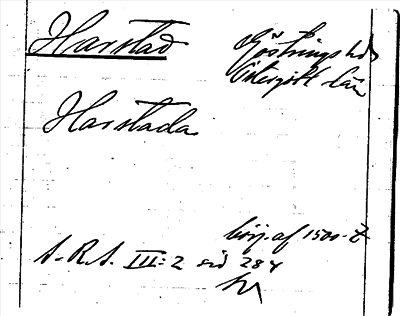 Harstad
Göstrings hd
Östergötl. län
Harstada
börj. af 1500-t.
S.R.A. III:2 sid 284